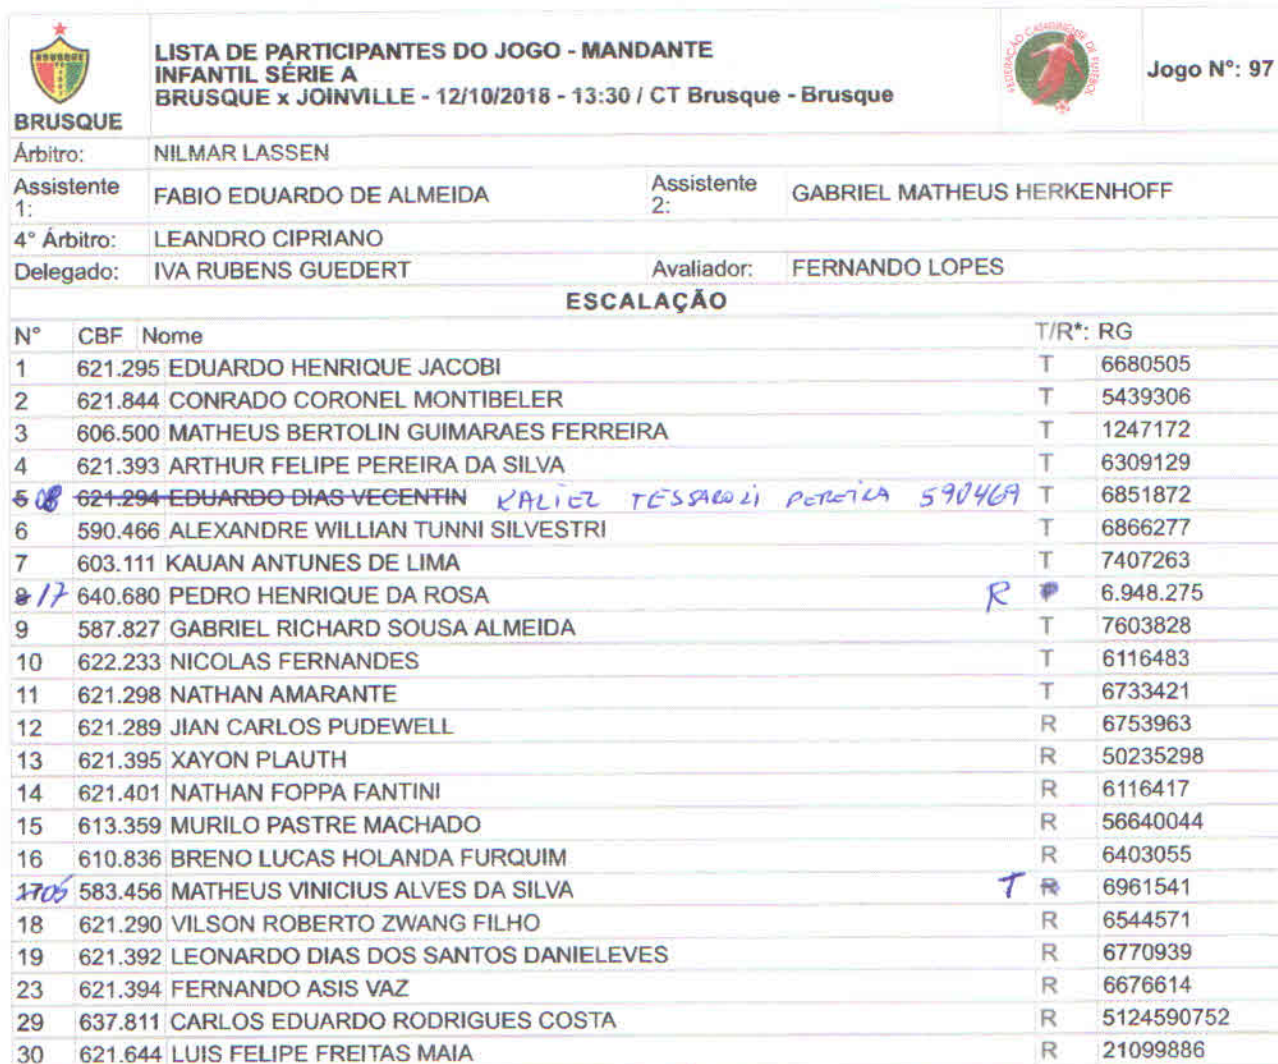 BRUSQUE
LISTA DE PARTICIPANTES DO JOGO - MANDANTE
INFANTIL SÉRIE A
BRUSQUE x JOINVILLE - 12/10/2018 - 13:30 / CT Brusque - Brusque
FEDERAÇÃO CATARINENSE DE FUTEBOL
Jogo N°: 97
BRUSQUE
Árbitro: NILMAR LASSEN
Assistente 1: FABIO EDUARDO DE ALMEIDA Assistente 2: GABRIEL MATHEUS HERKENHOFF
4° Árbitro: LEANDRO CIPRIANO
Delegado: IVA RUBENS GUEDERT Avaliador: FERNANDO LOPES
ESCALAÇÃO
N° CBF Nome T/R*: RG
1 621.295 EDUARDO HENRIQUE JACOBI T 6680505
2 621.844 CONRADO CORONEL MONTIBELER T 5439306
3 606.500 MATHEUS BERTOLIN GUIMARAES FERREIRA T 1247172
4 621.393 ARTHUR FELIPE PEREIRA DA SILVA T 6309129
5 08 621.294 EDUARDO DIAS VECENTIN KALIEL PEREIRA 590469 T 6851872
6 590.466 ALEXANDRE WILLIAN TUNNI SILVESTRI T 6866277
7 603.111 KAUAN ANTUNES DE LIMA T 7407263
8 17 640.680 PEDRO HENRIQUE DA ROSA R T 6.948.275
9 587.827 GABRIEL RICHARD SOUSA ALMEIDA T 7603828
10 622.233 NICOLAS FERNANDES T 6116483
11 621.298 NATHAN AMARANTE T 6733421
12 621.289 JIAN CARLOS PUDEWELL R 6753963
13 621.395 XAYON PLAUTH R 50235298
14 621.401 NATHAN FOPPA FANTINI R 6116417
15 613.359 MURILO PASTRE MACHADO R 56640044
16 610.836 BRENO LUCAS HOLANDA FURQUIM R 6403055
17 05 583.456 MATHEUS VINICIUS ALVES DA SILVA T R 6961541
18 621.290 VILSON ROBERTO ZWANG FILHO R 6544571
19 621.392 LEONARDO DIAS DOS SANTOS DANIELEVES R 6770939
23 621.394 FERNANDO ASIS VAZ R 6676614
29 637.811 CARLOS EDUARDO RODRIGUES COSTA R 5124590752
30 621.644 LUIS FELIPE FREITAS MAIA R 21099886